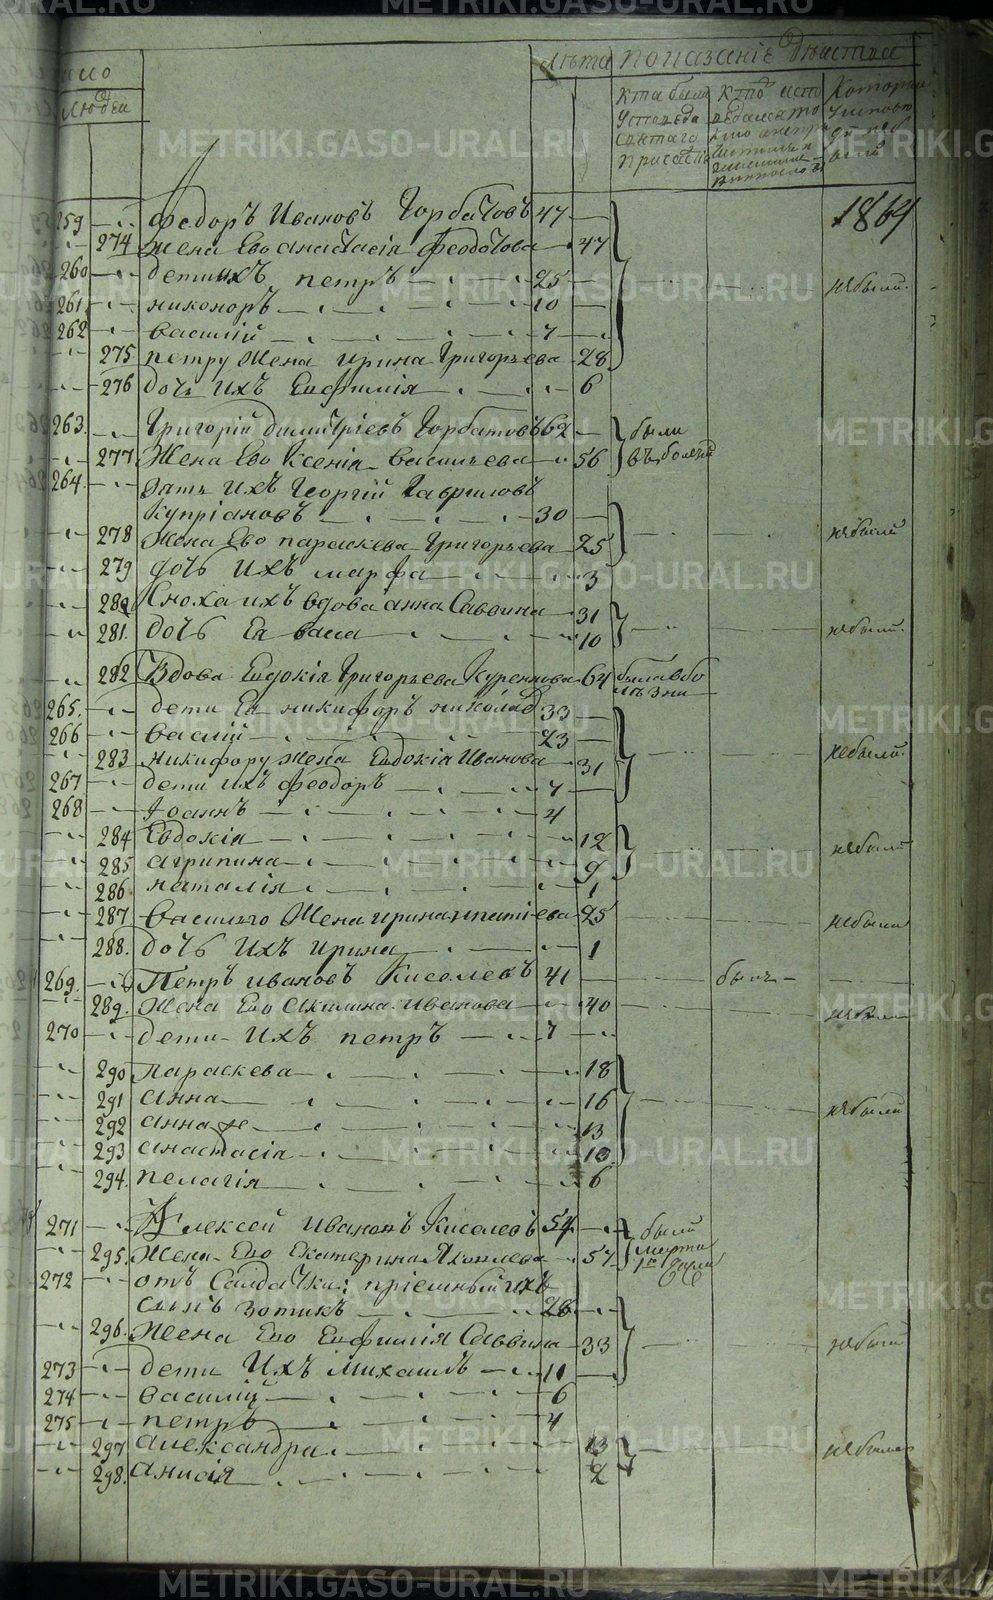 число лѣта показанiѣ дѣйства
людей
Кто были
у исповеди
святаго
причастiя
1864
259 Федоръ Ивановъ Горбатовъ 47
274 жена Ево анастасiя феодотова 47
260 дети ихъ петръ 25 небыли
261 никоноръ 10
262 василiй 7
275 петру жена ирина Григорьева 28
276 дочь ихъ Евфимiя 6
263 Григорiй димитрiевъ Горбатовъ 62 были
277 жена Ево ксенiя васильева 56 въ болезн
264 зять ихъ Георгiй Гавриловъ
Купрiановъ 30
278 жена Ево параскева Григорьева 25 небыли
279 дочь ихъ марфа 3
280 Сноха ихъ вдова анна Саввина 31
281 дочь Ея 10 небыли
282 Вдова Евдокiя Григорьева 64 была въ бо
лезни
265 дети Ея никифоръ 33
266 василiй 23
283 никифору жена Евдокiя Иванова 31 небыли
267 дети ихъ феодоръ 7
268 Iоаннъ 4
284 Евдокiя 12
285 агрипина 9 небыли
286 наталiя 1
287 василью жена ирина ипатiева 25 небыли
288 дочь ихъ ирина 1
269 Петръ ивановъ Киселевъ 41 былъ
289 жена Ево Акилина иванова 40 небыли
270 дети ихъ петръ 7
290 параскева 18
291 анна 16 небыли
292 анна же 13
293 анастасiя 10
294 пелагiя 6
271 Алексей ивановъ Киселевъ 54 были
295 жена Ево Екатерина Яковлева 57 марта
272 отъ Солдатки прiемный ихъ
сынъ зотикъ 26
296 жена Ево Евфимiя Саввина 33 небыли
273 дети ихъ михаилъ 11
274 василiй 6
275 петръ 4
297 александра 13 небыли
298 анисiя 2
METRIKI.GASO-URAL.RU